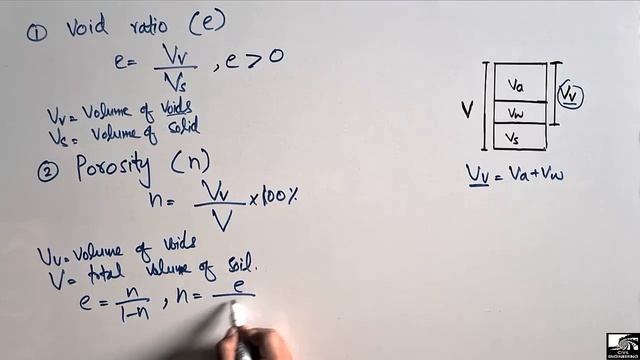 ① Void ratio (e)
e = Vv/Vs , e > 0
Vv = Volume of voids
Vs = Volume of solid
② Porosity (n)
n = Vv/V × 100%
Vv = Volume of voids
V = total volume of soil.
e = n/1-n , n = e/
V
Va
Vw
Vs
Vv
Vv = Va + Vw
CIVIL
ENGINEERING